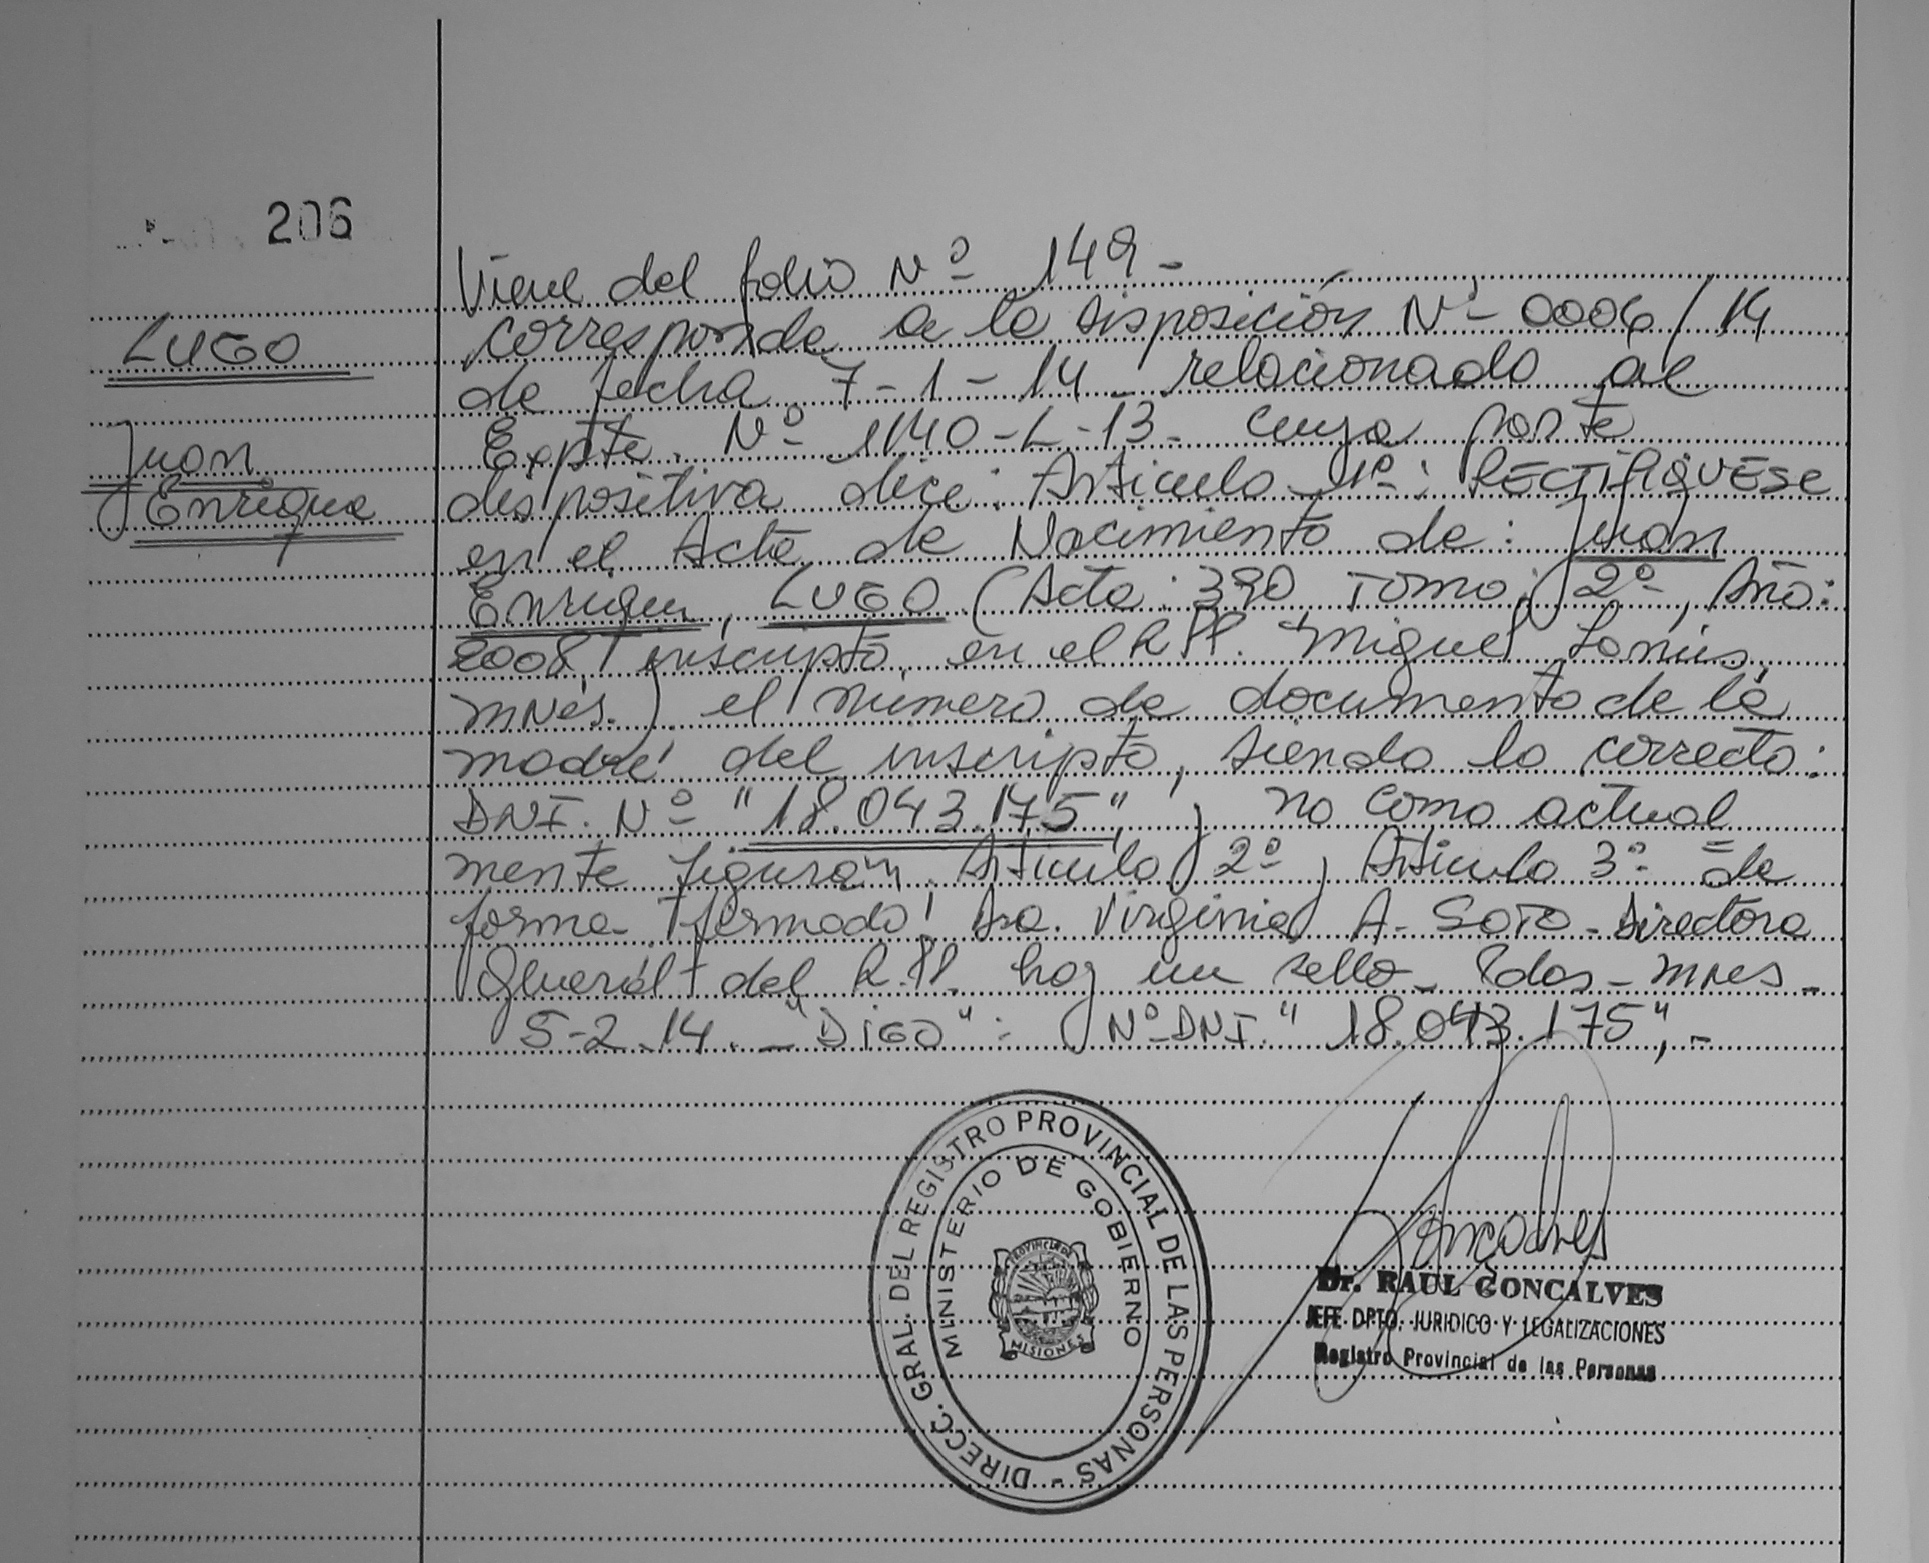 206
LUGO
Juan
Enrique
Viene del folio Nº 149-
corresponde a la disposición Nº 0006/14
de fecha 7-1-14 relacionado al
Expte. Nº 1140-L-13- cuya parte
dispositiva dice: Articulo 1º: RECTIFIQUESE
en el Acta de Nacimiento de: Juan
Enrique LUGO (Acta: 390 Tomo: 2º, Año:
2008, inscripto en el R.PP. Miguel Lanús,
Mnes.) el número de documento de la
madre del inscripto, siendo lo correcto:
DNI. Nº "18.043.175", y no como actual
mente figuran. Articulo 2º y Articulo 3º = de
forma firmado: Dra. Virginia A- SOTO- Directora
General del R.PP. hay un sello- Pdas- Mnes-
5-2-14. - "DIGO": Nº DNI. "18.043.175",-
DIRECC. GRAL. DEL REGISTRO PROVINCIAL DE LAS PERSONAS -
MINISTERIO DE GOBIERNO
PROVINCIA DE
MISIONES
Goncalves
Dr. RAUL GONCALVES
JEFE DPTO. JURIDICO Y LEGALIZACIONES
Registro Provincial de las Personas